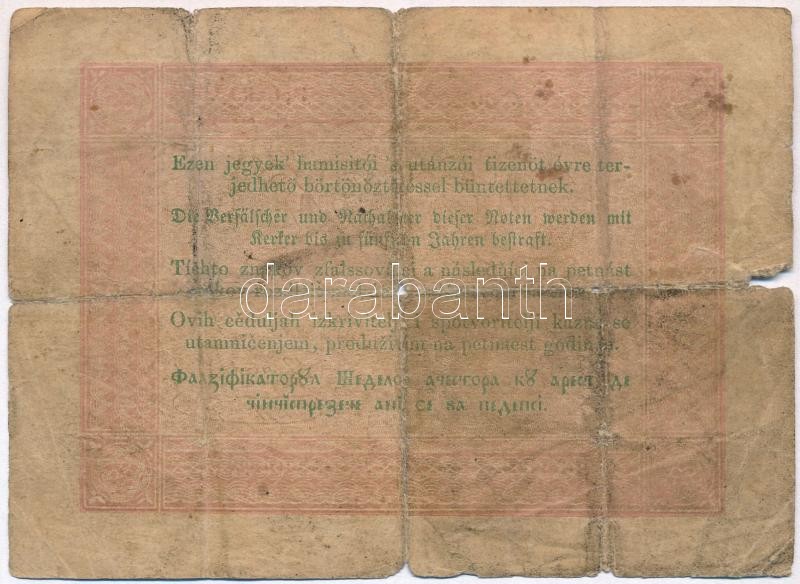 Ezen jegyek' hamisitói 's utánzói tizenöt évre ter-
jedhető börtönöztetéssel büntettetnek.
Die Verfälscher und Nachahmer dieser Noten werden mit
Kerker bis zu fünfzehn Jahren bestraft.
Tíchto znakov zfalssováni a následníci na petnást
darabanth
Ovih cédúljah izkrivitelji i spotvoritelji kazne se
utamničenjem, produživim na petnaest godinah.
Фалзіфікаторꙋл Шеделор ачестора кꙋ арест де
чінчіспрезече ані се ва педепсі.